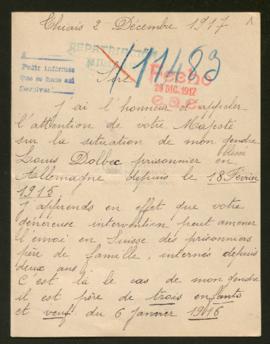 Thiais 2 Décembre 1917
Pedir informes
Que se hace así
111483
Fecho
28 DIC. 1917
Sire
J'ai l'honneur d'appeler
l'attention de votre Majesté
sur la situation de mon gendre
Louis Dolbec prisonnier en
Allemagne depuis le 18 Février
1915
J'apprends en effet que votre
généreuse intervention peut amener
l'envoi en Suisse des prisonniers
père de famille, internés depuis
deux ans
C'est là le cas de mon gendre
il est père de trois enfants
et veuf du 6 janvier 1916